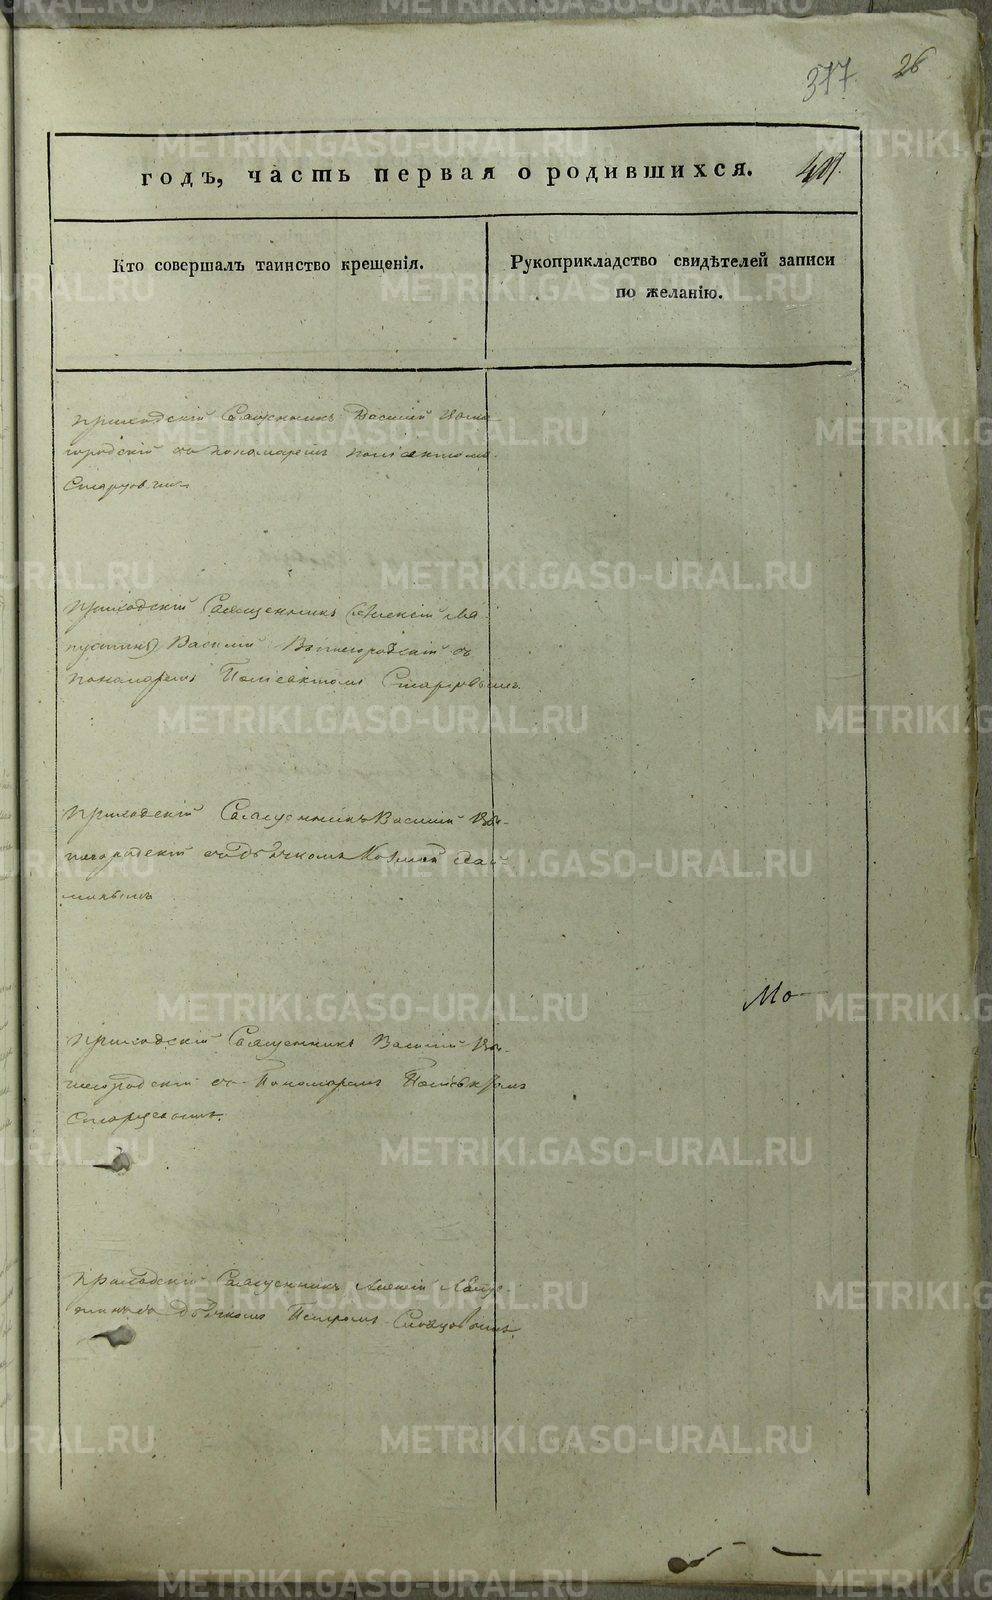 26
377
годъ, часть первая о родившихся.
Кто совершалъ таинство крещенія.
Рукоприкладство свидѣтелей записи
по желанію.
Приходскій Священникъ Василій
городскій съ пономаремъ
Старцовымъ
Приходскій Священникъ Алексій Ла-
пустинъ Василій Вышегородскій съ
пономаремъ Поліевктомъ Старцовымъ.
Приходскій Священникъ Василій Вы-
шегородскій съ Дьячкомъ Козмой
Приходскій Священникъ Василій Вы-
шегородскій съ Пономаремъ Поліевктомъ
Старцовымъ.
Мо
Приходскій Священникъ Алексій
съ Дьячкомъ Петромъ
METRIKI.GASO-URAL.RU